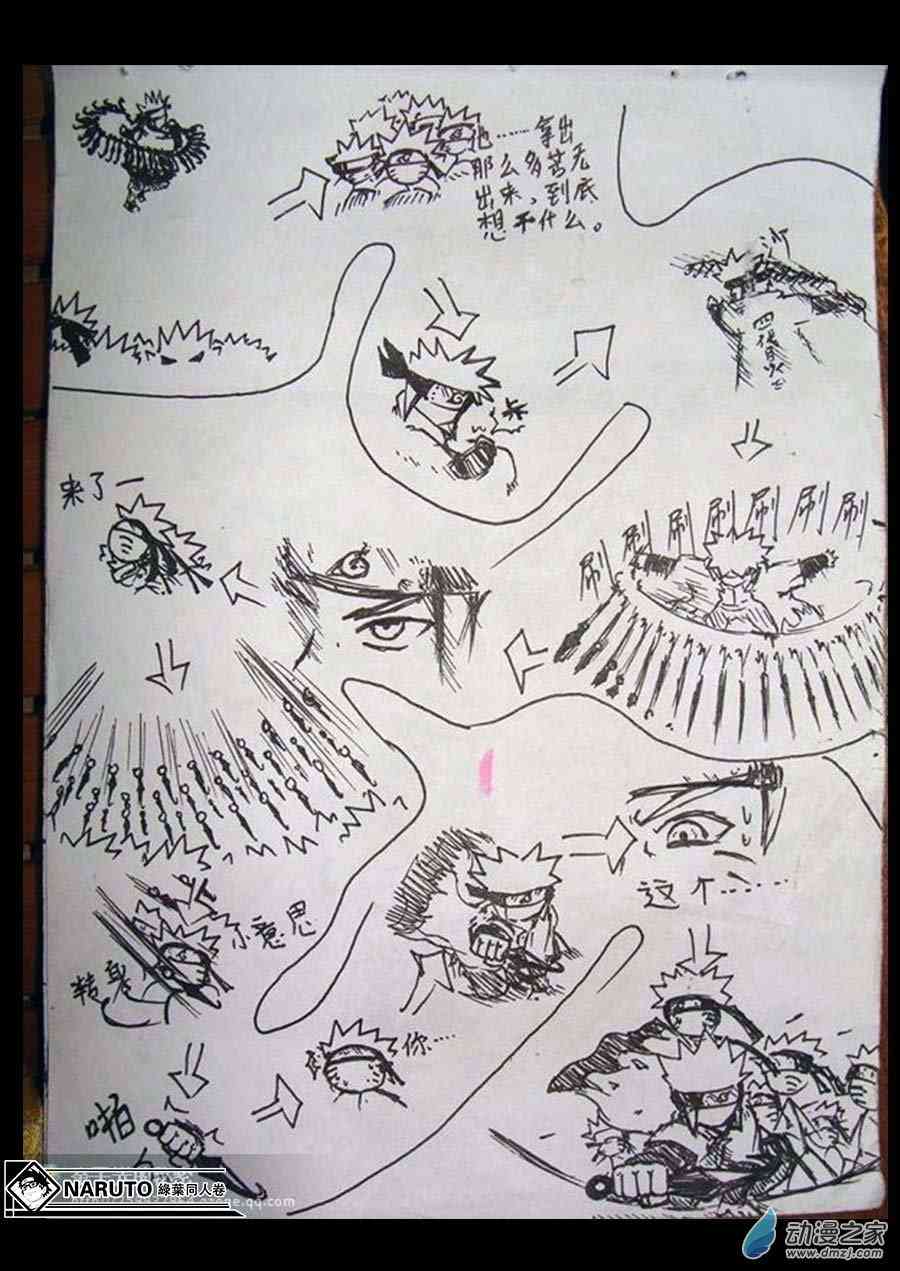 他……拿出
那么多苦无
出来，到底
想干什么。
刷刷刷刷刷刷刷
来了一
这个……
小意思
你……
啪
NARUTO 綠葉同人卷
动漫之家
www.dmzj.com